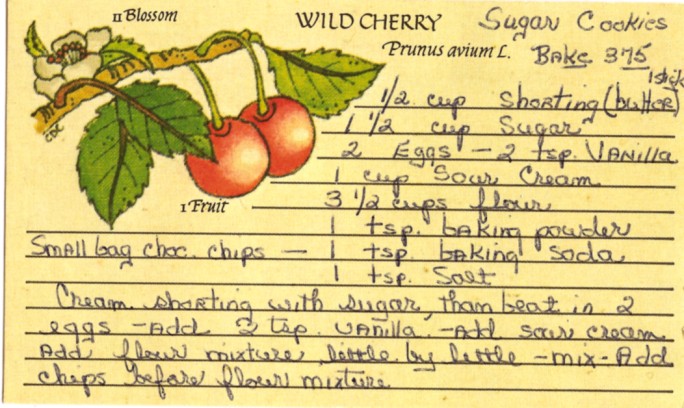 II Blossom
WILD CHERRY
Prunus avium L.
Sugar Cookies
Bake 375
1 stick
1/2 cup shorting (butter)
1 1/2 cup Sugar
2 Eggs - 2 tsp. Vanilla
1 cup Sour Cream
3 1/2 cups flour
I Fruit
1 tsp. baking powder
Small bag choc. chips — 1 tsp. baking soda
1 tsp. Salt
Cream shorting with sugar, than beat in 2
eggs - Add 2 tsp. vanilla - Add sour cream
Add flour mixture little by little - mix - Add
chips before flour mixture
CDC